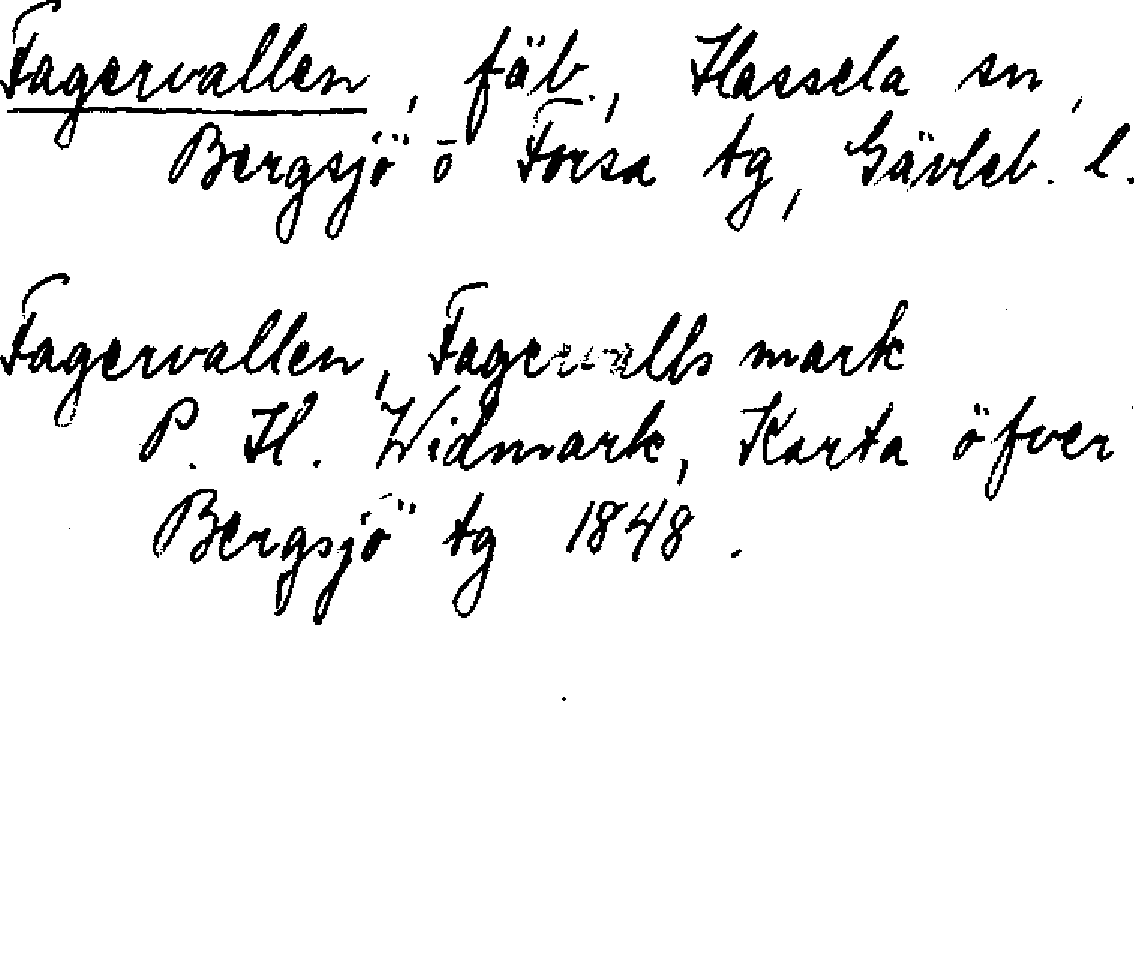 Fagervallen, fäb., Hassela sn,
Bergsjö o Forsa tg, Gävleb. l.
Fagervallen, Fagervalls mark
P. H. Widmark, Karta öfver
Bergsjö tg 1848.